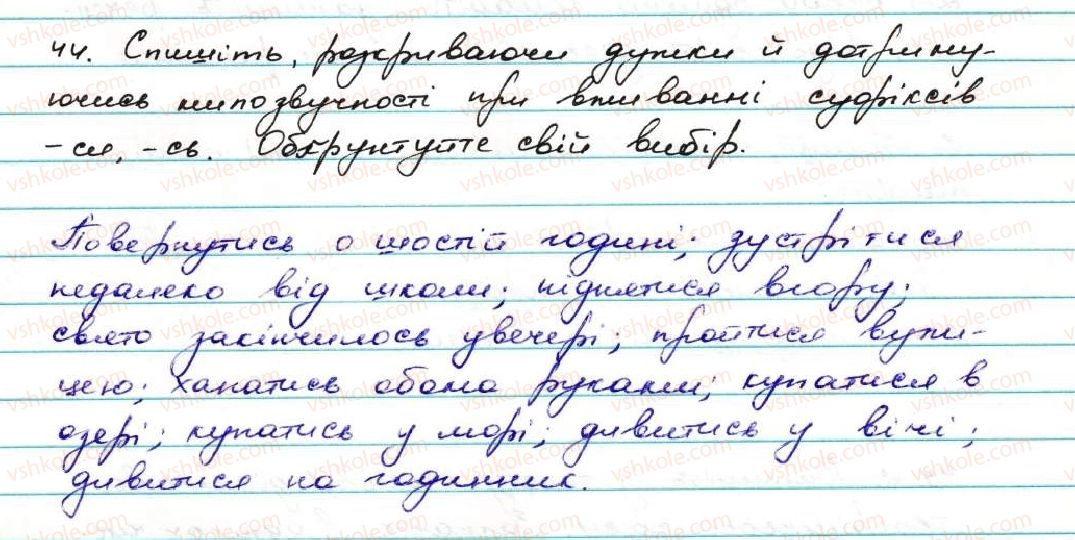 44. Спишіть, розкриваючи дужки й дотриму-
ючись милозвучності при вживанні суфіксів
-ся, -сь. Обґрунтуйте свій вибір.
Повернутись о шостій годині; зустрітися
недалеко від школи; піднятися вгору;
свято закінчилось увечері; пройтися вули-
цею; хапатись обома руками; купатися в
озері; купатись у морі; дивитись у вічі;
дивитися на годинник.